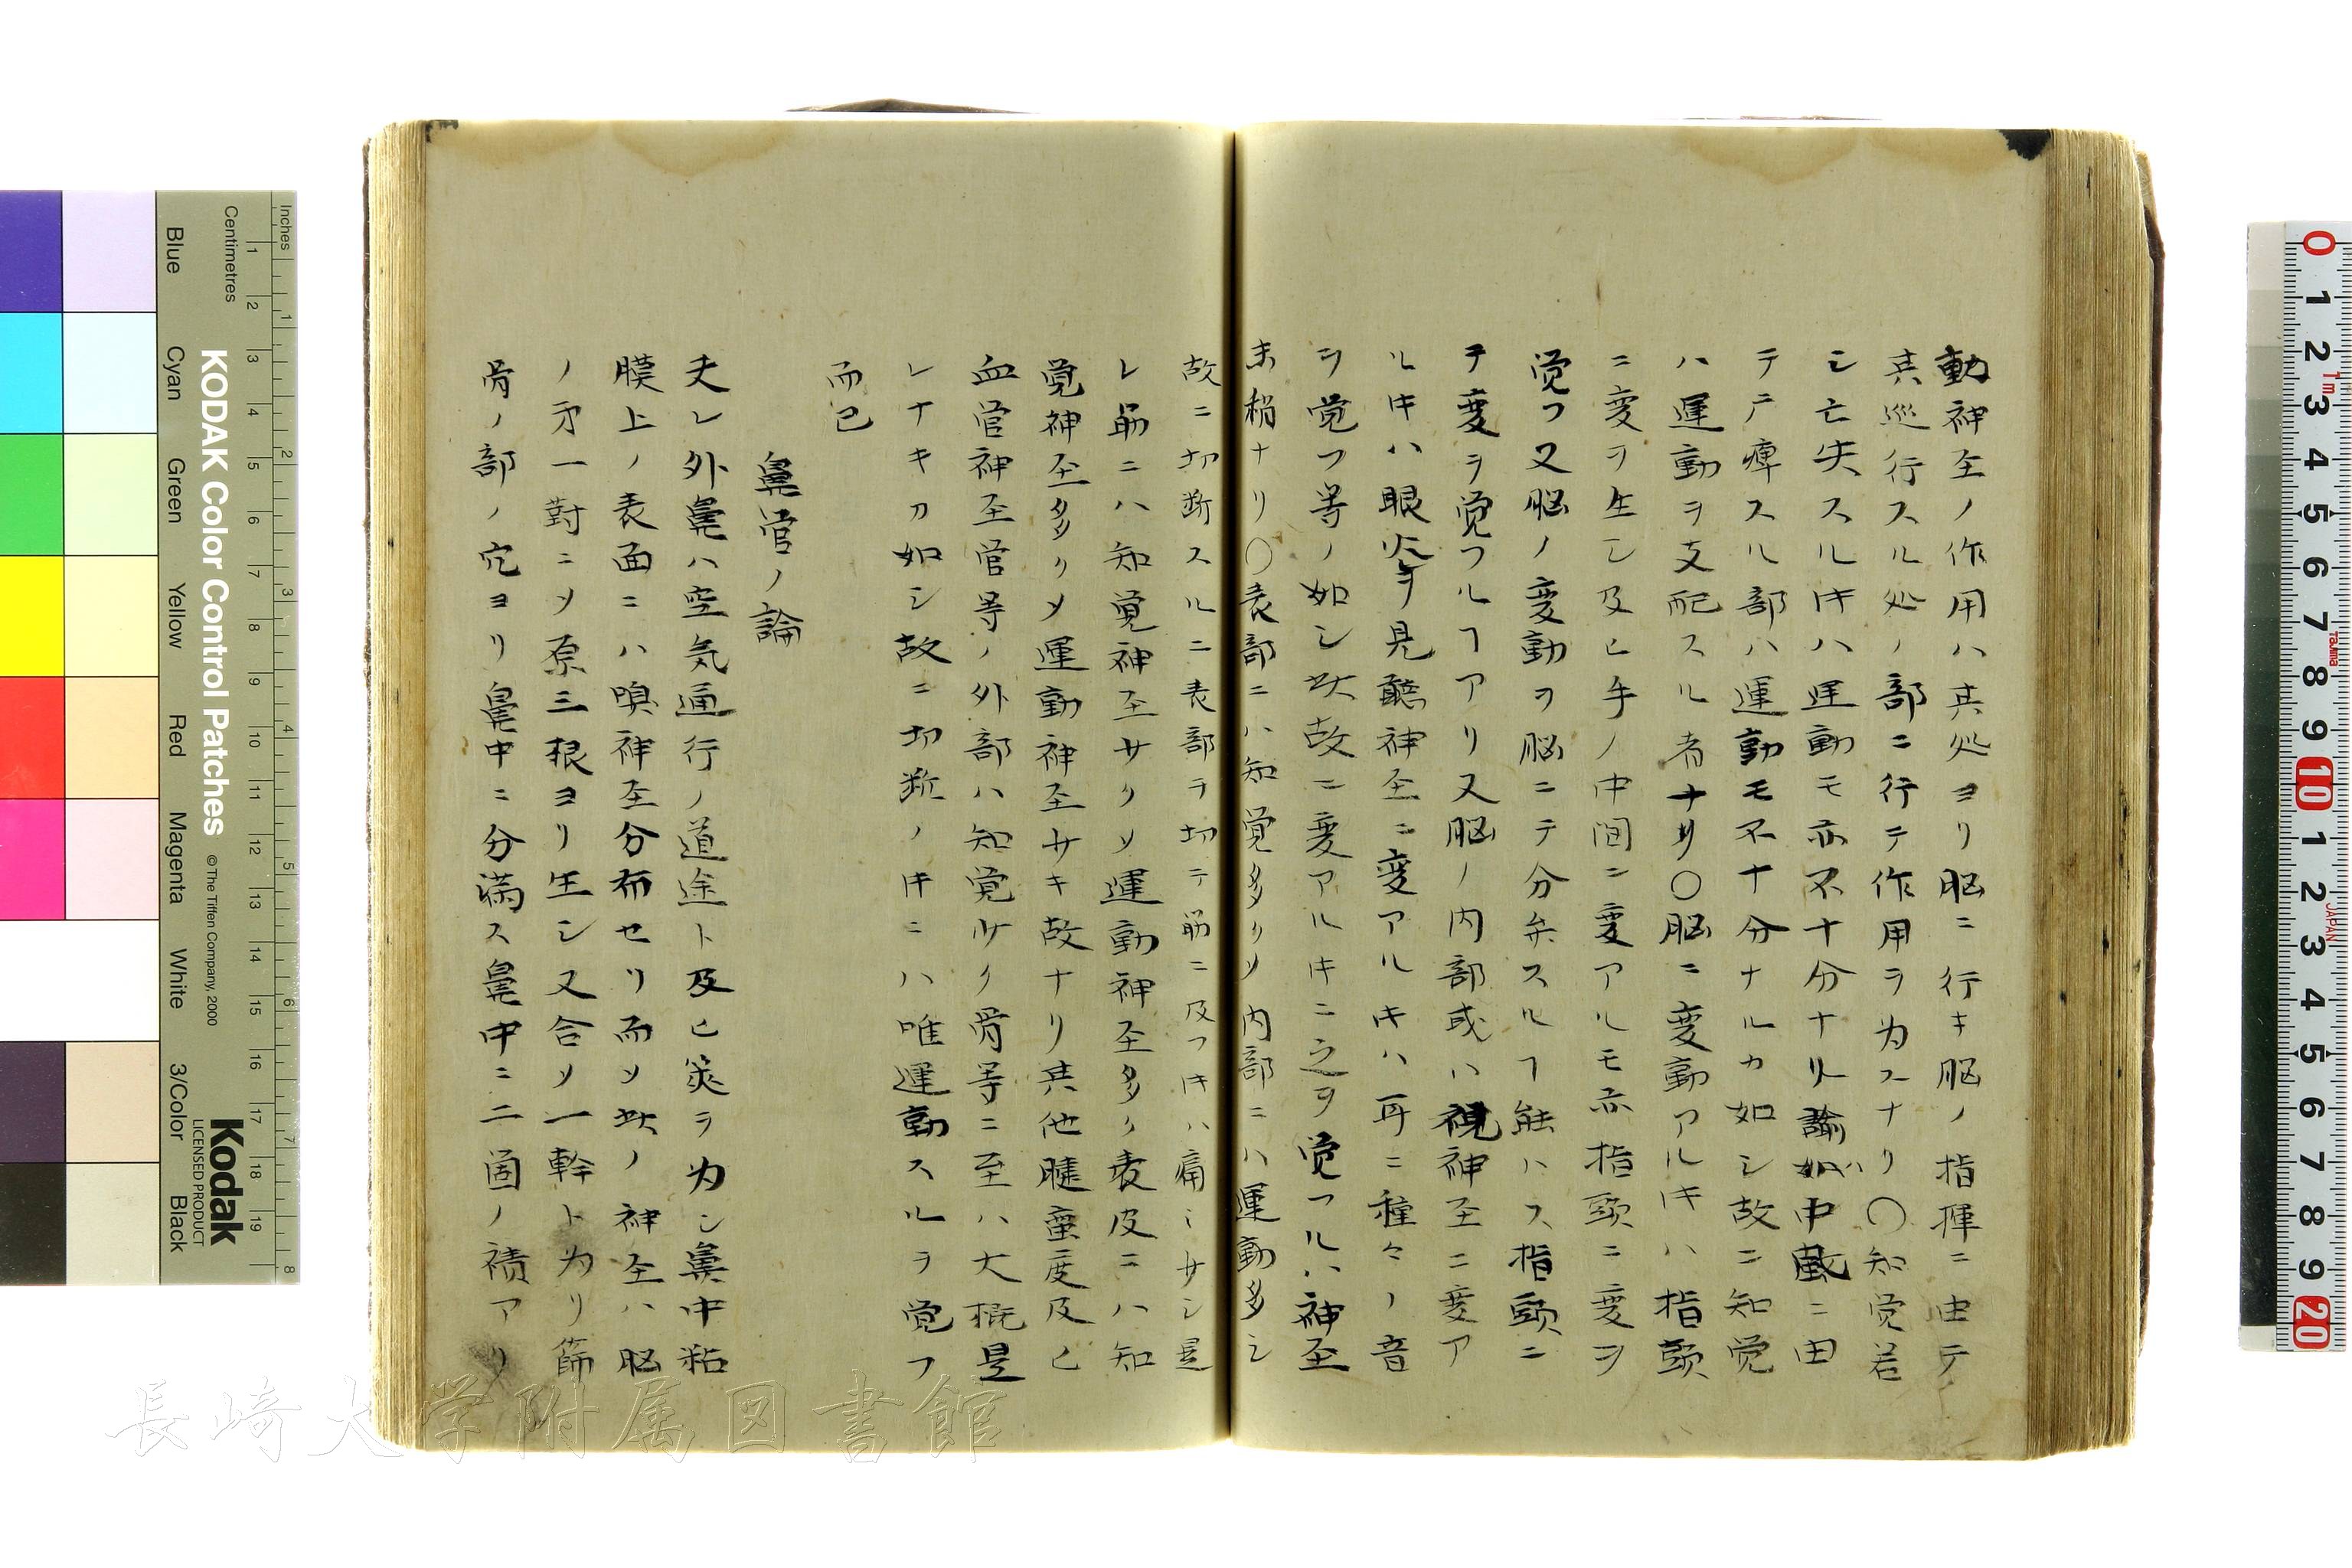 動神至ノ作用ハ其処ヨリ脳ニ行キ脳ノ指揮ニ由テ
其巡行スル処ノ部ニ行テ作用ヲ为スナリ〇知覚若
シ亡失スルキハ運動モ亦不十分ナリ譬如ハ中蔵ニ由
テ痺スル部ハ運動モ不十分ナルカ如シ故ニ知覚
ハ運動ヲ支配スル者ナリ〇脳ニ変動アルキハ指頭
ニ変ヲ生シ及ヒ手ノ中間ニ変アルモ亦指頭ニ変ヲ
覚フ又脳ノ変動ヲ脳ニテ分弁スルヿ能ハス指頭ニ
テ変ヲ覚フルヿアリ又脳ノ内部或ハ視神至ニ変ア
ルキハ眼火ヲ見聽神至ニ変アルキハ耳ニ種々ノ音
ヲ覚フ等ノ如シ此故ニ変アルキニ之ヲ覚フルハ神至
末梢ナリ〇表部ニハ知覚多クメ内部ニハ運動多シ
故ニ切断スルニ表部ヲ切テ筋ニ及フキハ痛ミサシ是
レ筋ニハ知覚神至サクメ運動神至多ク表皮ニハ知
覚神至多クメ運動神至サキ故ナリ其他腱蛮度及ヒ
血管神至管等ノ外部ハ知覚サク骨等ニ至ハ大概是
レナキカ如シ故ニ切断ノキニハ唯運動スルヲ覚フ
而已
鼻官ノ論
夫レ外鼻ハ空気通行ノ道途ト及ヒ篊ヲ为シ鼻中粘
膜上ノ表面ニハ嗅神至分布セリ而メ此ノ神至ハ脳
ノ第一對ニメ原三根ヨリ生シ又合メ一幹ト为リ篩
骨ノ部ノ穴ヨリ鼻中ニ分満ス鼻中ニ二箇ノ積アリ
KODAK Color Control Patches
© The Tiffen Company, 2000
Kodak
LICENSED PRODUCT
Inches
Centimetres
Blue
Cyan
Green
Yellow
Red
Magenta
White
3/Color
Black
長崎大学附属図書館